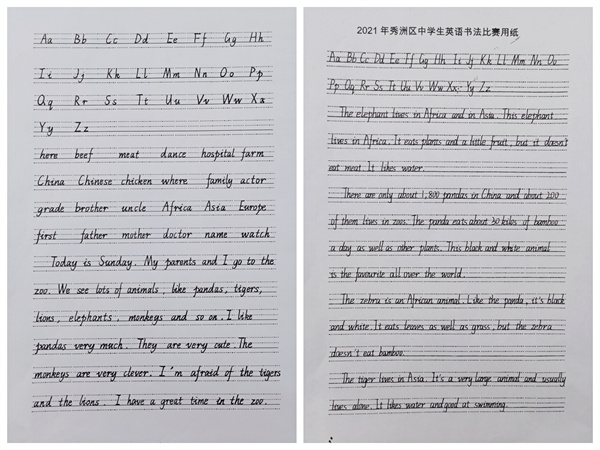 Aa Bb Cc Dd Ee Ff Gg Hh
Ii Jj Kk Ll Mm Nn Oo Pp
Qq Rr Ss Tt Uu Vv Ww Xx
Yy Zz
here beef meat dance hospital farm
China Chinese chicken where family actor
grade brother uncle Africa Asia Europe
first father mother doctor name watch
Today is Sunday. My parents and I go to the
zoo. We see lots of animals, like pandas, tigers,
lions, elephants, monkeys and so on. I like
pandas very much. They are very cute. The
monkeys are very clever. I'm afraid of the tigers
and the lions. I have a great time in the zoo.
2021年秀洲区中学生英语书法比赛用纸
Aa Bb Cc Dd Ee Ff Gg Hh Ii Jj Kk Ll Mm Nn Oo
Pp Qq Rr Ss Tt Uu Vv Ww Xx Yy Zz
The elephant lives in Africa and in Asia. This elephant
lives in Africa. It eats plants and a little fruit, but it doesn't
eat meat. It likes water.
There are only about 1,800 pandas in China and about 200
of them lives in zoos. The panda eats about 30 kilos of bamboo
a day as well as other plants. This black and white animal
is the favourite all over the world.
The zebra is an African animal. Like the panda, it's black
and white. It eats leaves as well as grass, but the zebra
doesn't eat bamboo.
The tiger lives in Asia. It's a very large animal and usually
lives alone. It likes water and good at swimming.